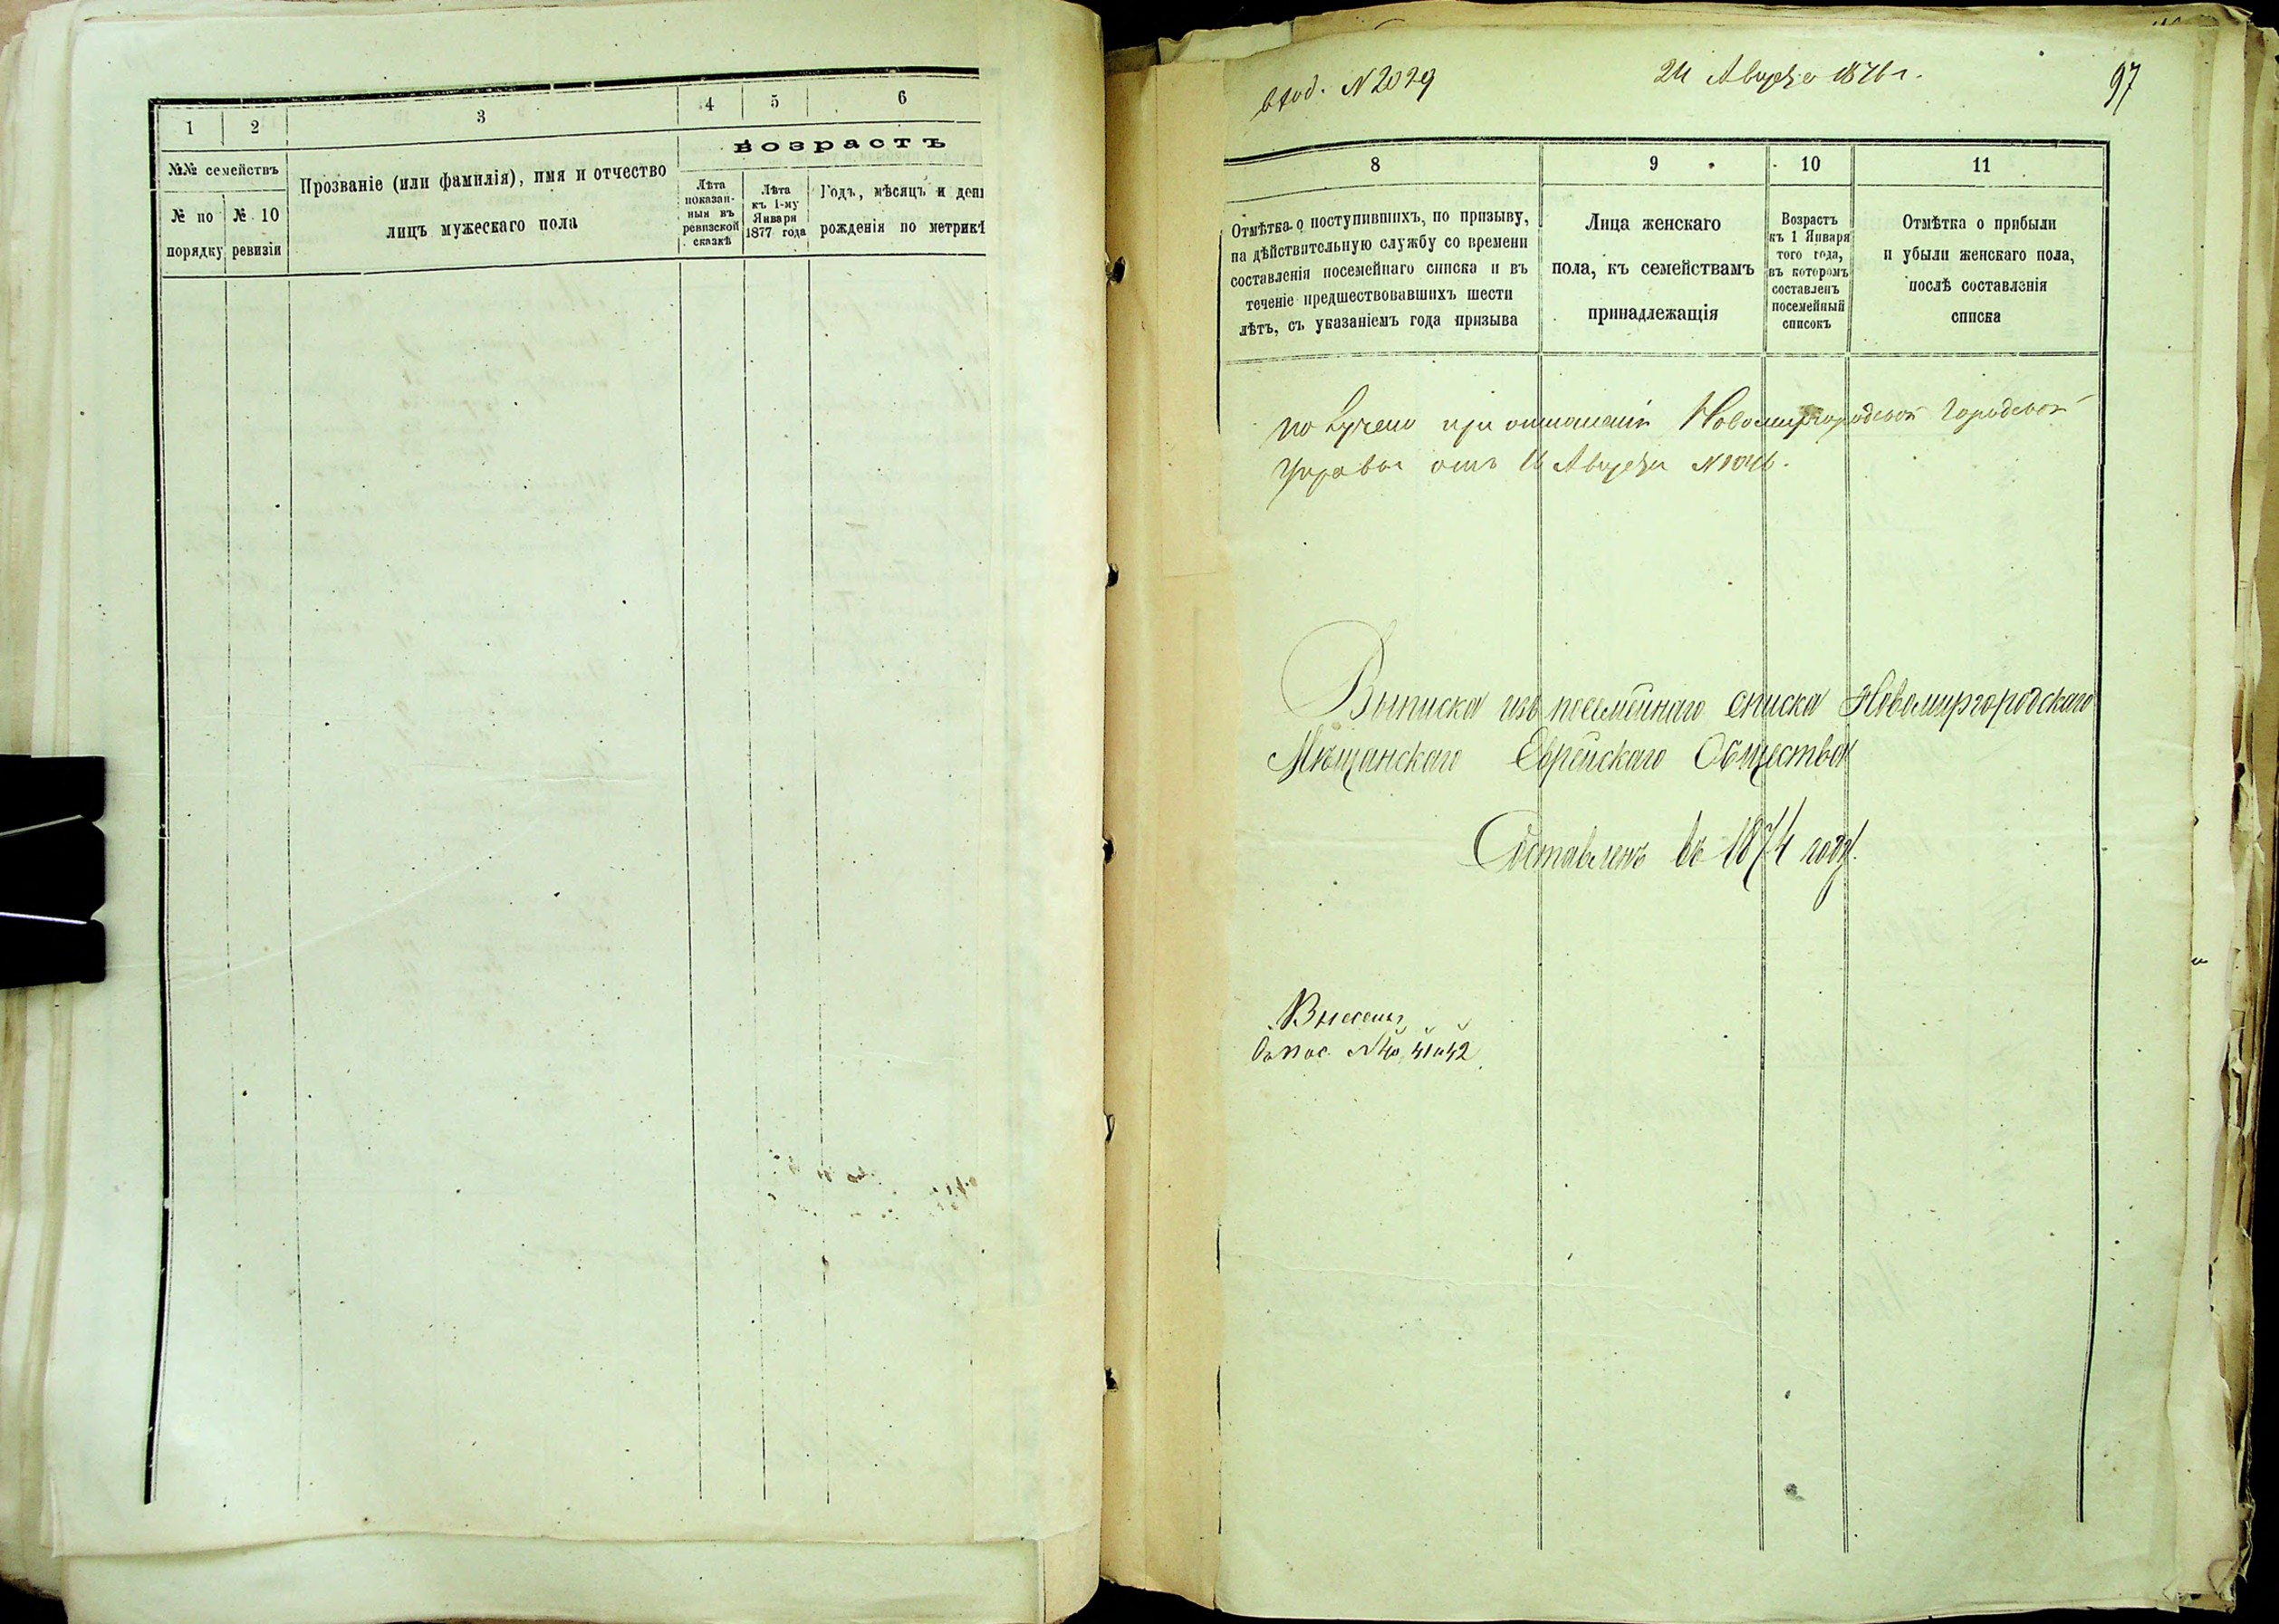 1 2 3 4 5 6
возрастъ
№№ семействъ
Прозваніе (или фамилія), имя и отчество
лицъ мужескаго пола
№ по
порядку
№ 10
ревизіи
Лѣта
показан-
ныя въ
ревизской
сказкѣ
Лѣта
къ 1-му
Января
1877 года
Годъ, мѣсяцъ и день
рожденія по метрикѣ
вход. № 2029
Августа
97
8 9 10 11
Отмѣтка о поступившихъ, по призыву,
на дѣйствительную службу со времени
составленія посемейнаго списка и въ
теченіе предшествовавшихъ шести
лѣтъ, съ указаніемъ года призыва
Лица женскаго
пола, къ семействамъ
принадлежащія
Возрастъ
къ 1 Января
того года,
въ которомъ
составленъ
посемейный
списокъ
Отмѣтка о прибыли
и убыли женскаго пола,
послѣ составленія
списка
получено при отношеніи Новомиргородской Городской
Управы отъ 16 Августа
Выписка изъ посемейнаго списка Новомиргородскаго
Мѣщанскаго Еврейскаго Общества
Составленъ въ 1874 году.
Внесены
№ 40, 41 и 42